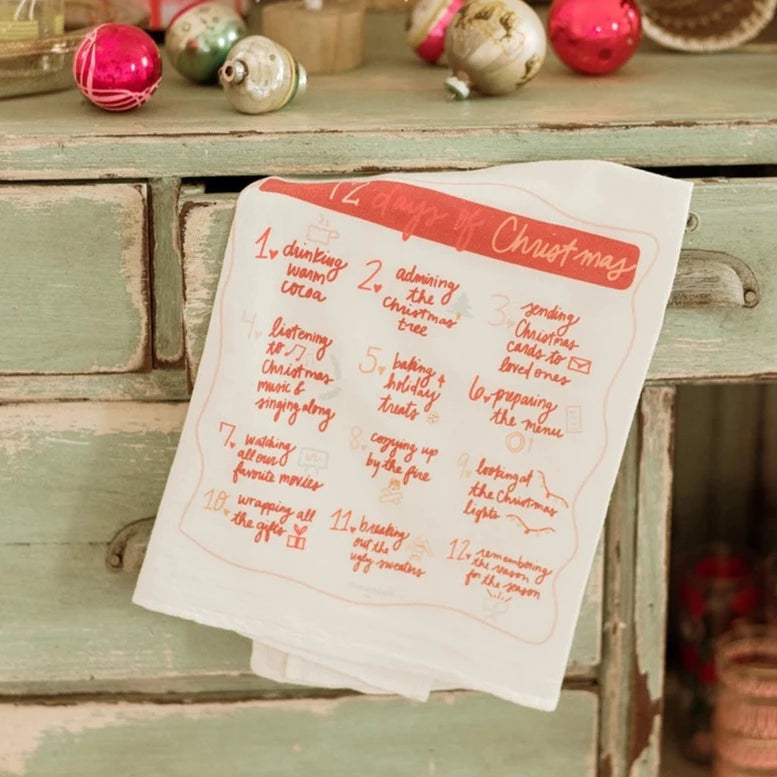 12 days of Christmas
1. drinking
warm
cocoa
2. admiring
the
christmas
tree
3. sending
Christmas
cards to
loved ones
4. listening
to
Christmas
music &
singing along
5. baking
holiday
treats
6. preparing
the menu
7. watching
all our
favorite movies
8. cozying up
by the fire
9. looking at
the Christmas
lights
10. wrapping all
the gifts
11. breaking
out the
ugly sweaters
12. remembering
the reason
for the season